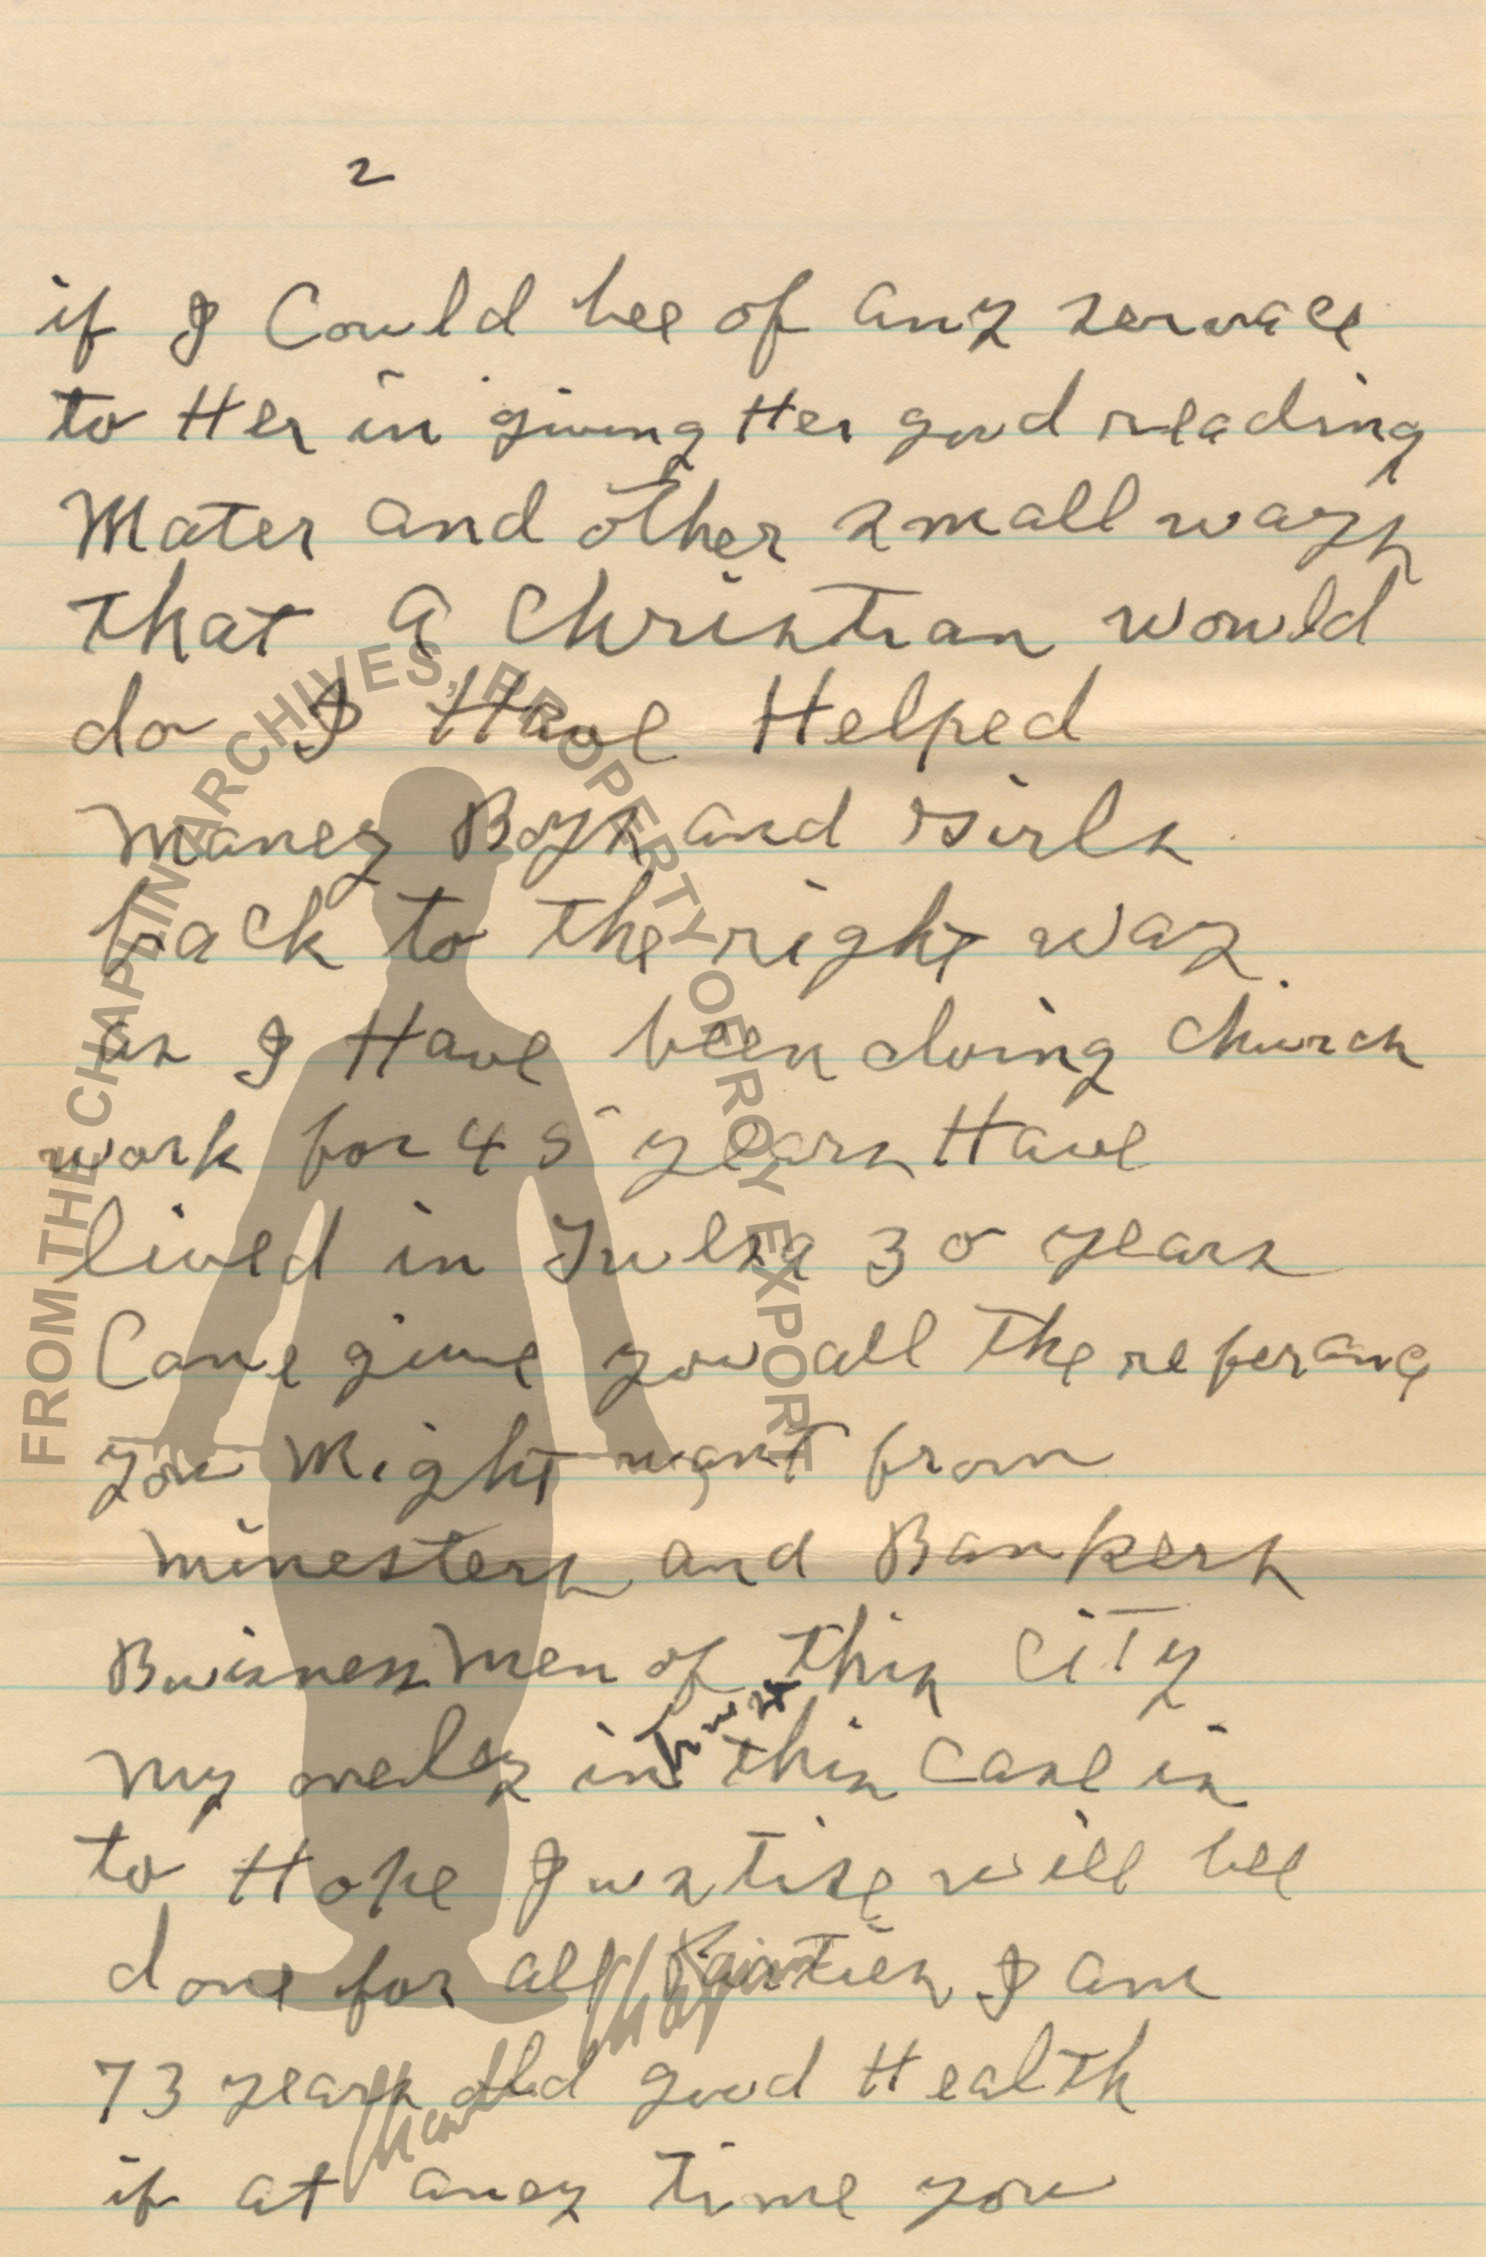 2
if I Could bee of any servace
to Her in giving Her good reading
Mater and other small ways
that a Christian would
do I Have Helped
maney Boys and Girls
back to the right way.
as I Have been doing church
work for 45 years Have
lived in Tulsa 30 years
Cane give you all the referance
you Might want from
minesters and Bankers
Buisness Men of this CiTy
my onely in this case is
to Hope Justise will bee
done for all Parties I am
73 years old good Health
if at aney time you
FROM THE CHAPLIN ARCHIVES, PROPERTY OF ROY EXPORT
Charlie Chaplin